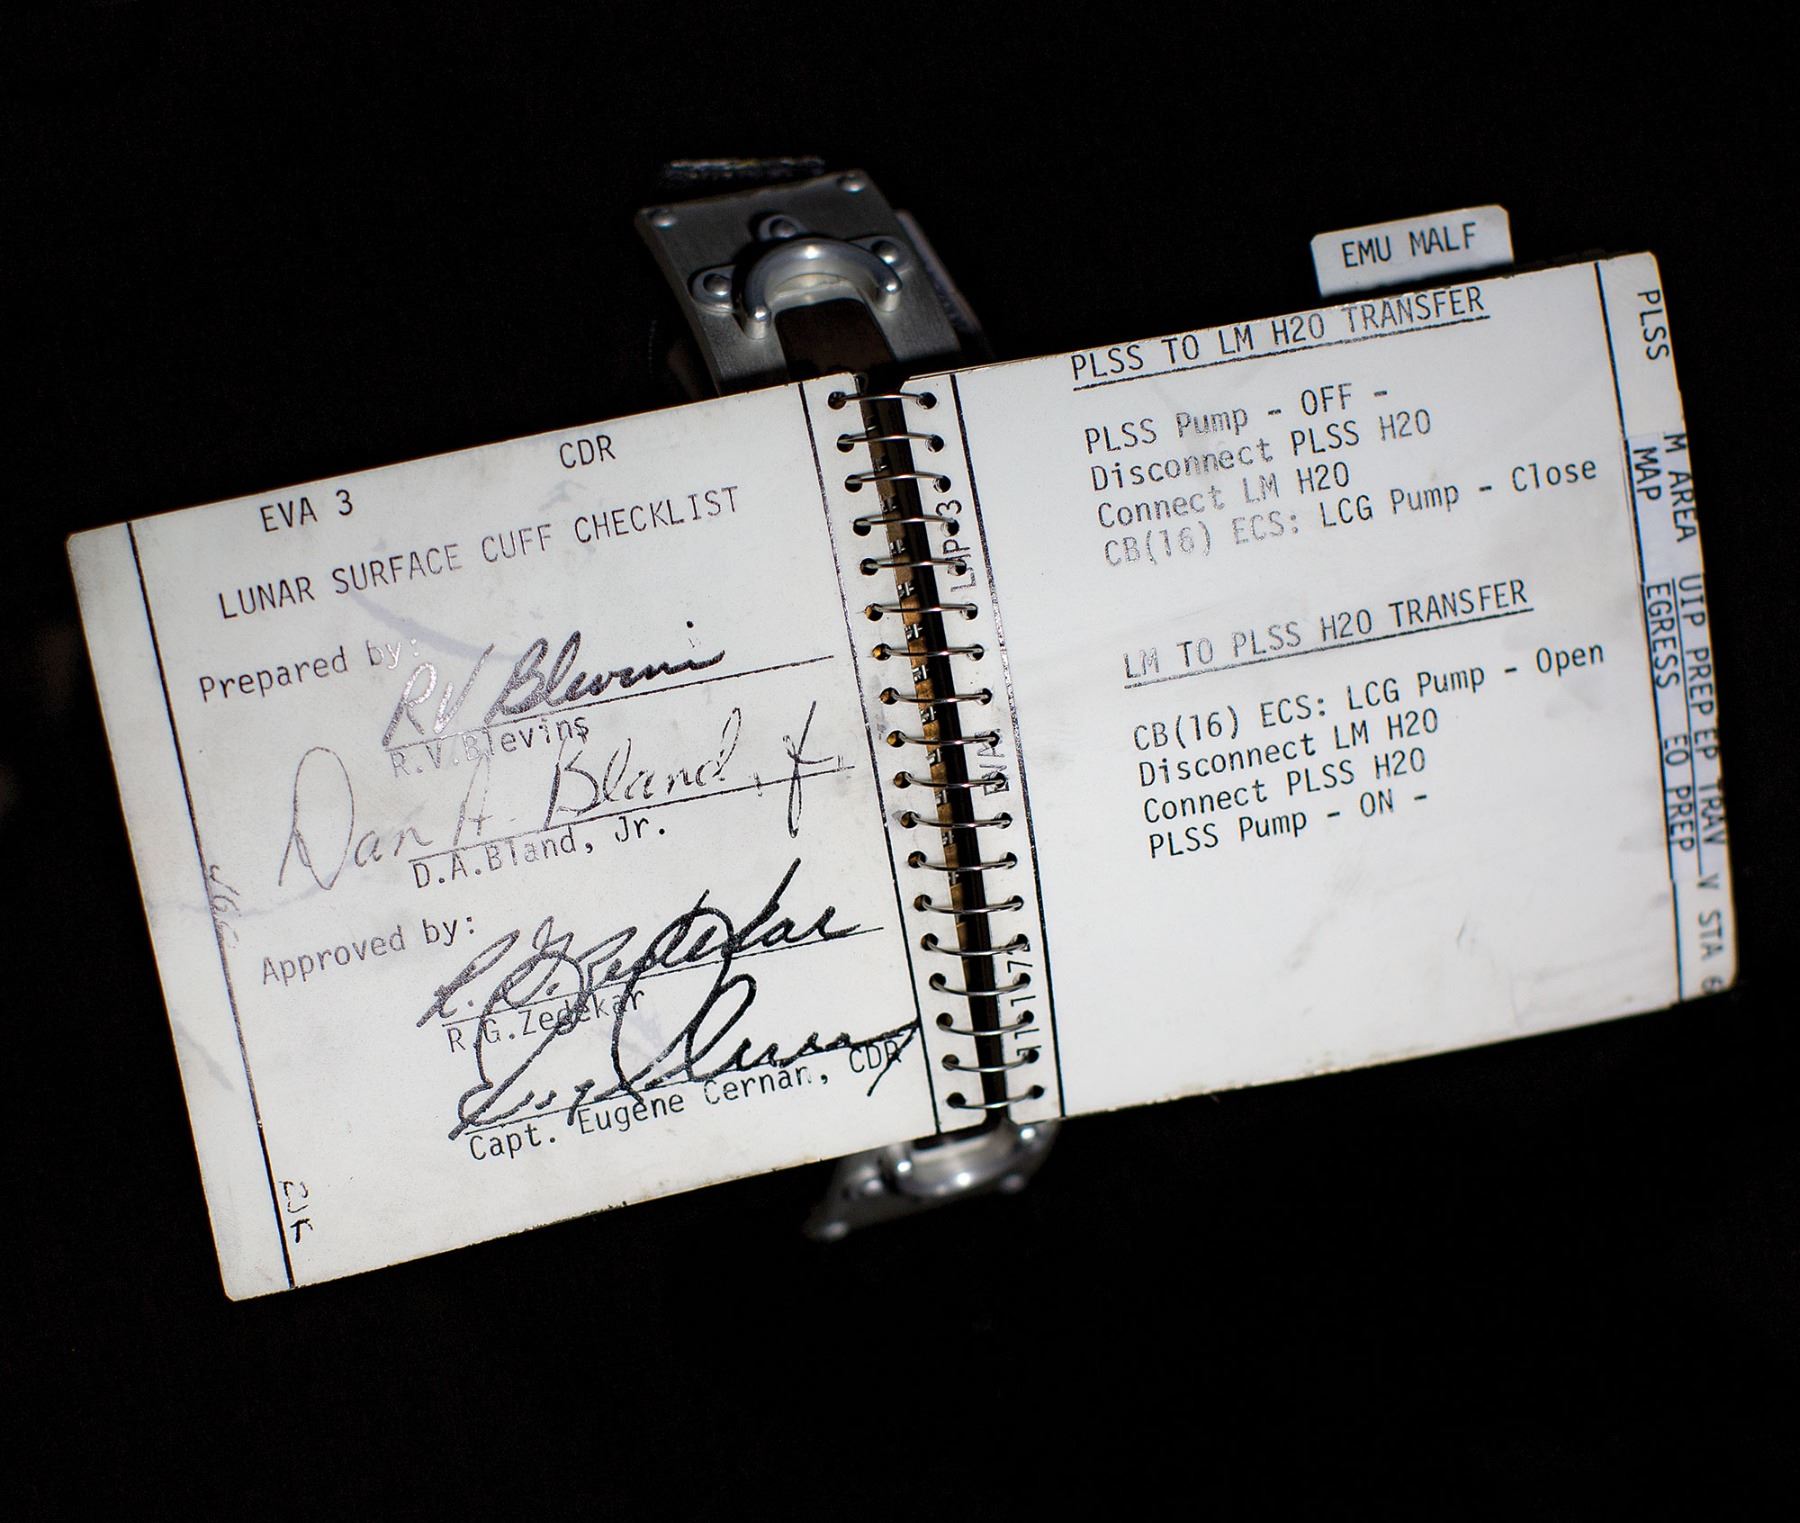 EVA 3 CDR
LUNAR SURFACE CUFF CHECKLIST
Prepared by:
RV Blevins
R.V.Blevins
Dan A. Bland, Jr.
D.A.Bland, Jr.
Approved by:
R. G. Zedekar
R.G.Zedekar
Eugene Cernan
Capt. Eugene Cernan, CDR
EMU MALF
PLSS TO LM H2O TRANSFER
PLSS Pump - OFF -
Disconnect PLSS H2O
Connect LM H2O
CB(16) ECS: LCG Pump - Close
LM TO PLSS H2O TRANSFER
CB(16) ECS: LCG Pump - Open
Disconnect LM H2O
Connect PLSS H2O
PLSS Pump - ON -
PLSS
MAP
EGRESS
EO PREP
AREA
PREP
TRAV
STA 6